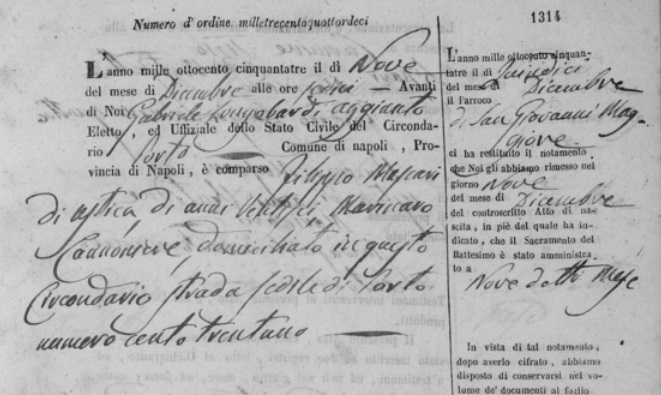 Numero d'ordine milletrecentoquattordeci
Lanno mille ottocento cinquantatre il dì Nove
del mese di Dicembre alle ore sedici — Avanti
di Noi Gabriele Longobardi aggiunto
Eletto, ed Uffiziale dello Stato Civile del Circonda-
rio Porto — Comune di napoli, Pro-
vincia di Napoli, è comparso Filippo
di ustica, di anni Ventisei, Marinaro
Cannoniere, domiciliato in questo
Circondario strada Sedile di Porto
numero cento trentuno —
1314
L'anno mille ottocento cinquan-
tatre il dì Quindici
del mese di Dicembre
il Parroco
di San Giovanni Mag-
giore
ci ha restituito il notamento
che Noi gli abbiamo rimesso nel
giorno Nove
del mese di Dicembre
del controscritto Atto di na-
scita, in piè del quale ha in-
dicato, che il Sacramento del
Battesimo è stato amministra-
to a Nove detto Mese
In vista di tal notamento,
dopo averlo cifrato, abbiamo
disposto di conservarsi nel vo-
lume de' documenti al foglio